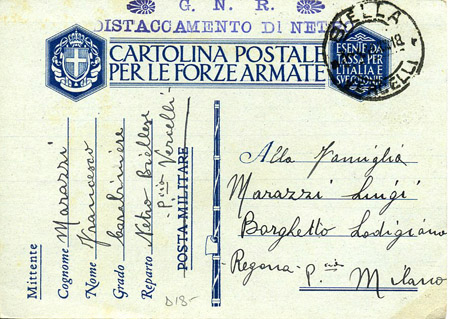 G. N. R.
DISTACCAMENTO DI NET
CARTOLINA POSTALE
PER LE FORZE ARMATE
ESENTE DA
TASSA PER
L'ITALIA E
BIELLA
VERCELLI
Mittente
Cognome Marazzi
Nome Francesco
Grado Carabiniere
Reparto Netro Biellese
P.cia Vercelli
POSTA MILITARE
Alla Famiglia
Marazzi Luigi
Borghetto Lodigiano
Regona P. Milano
D18-